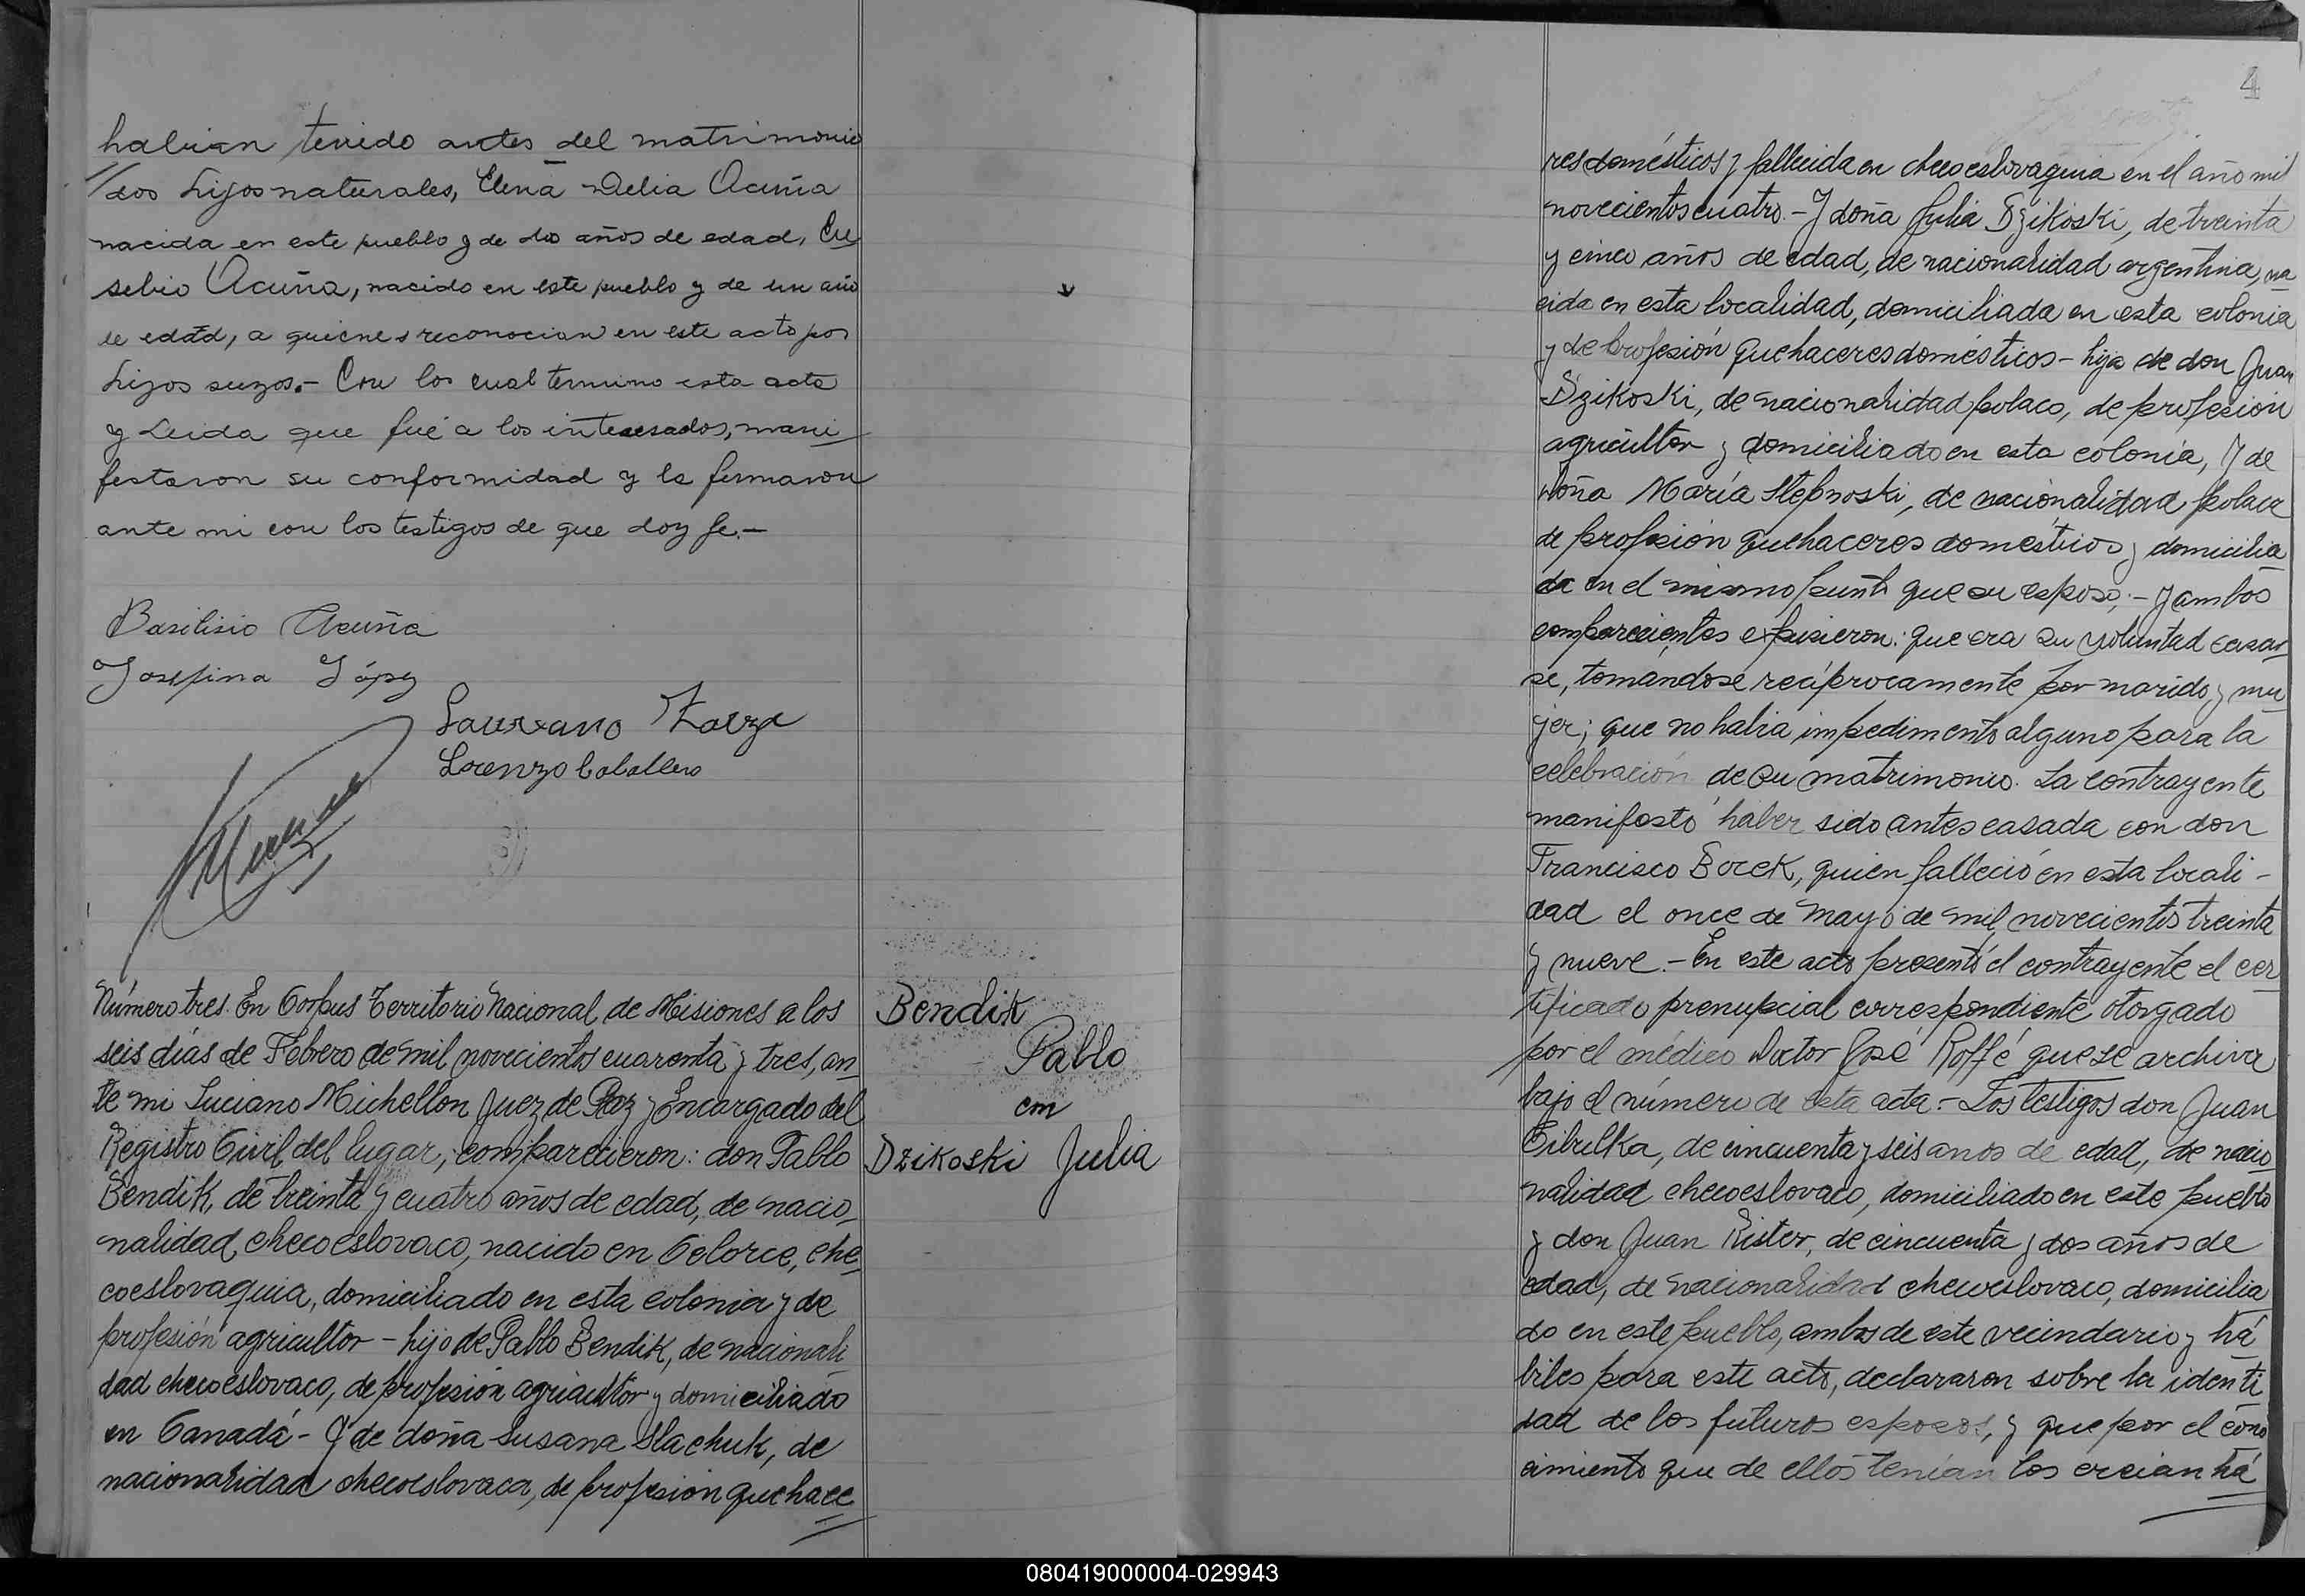 habian tenido antes del matrimonio
dos hijos naturales, Elena Delia Acuña
nacida en este pueblo y de dos años de edad, Eu
sebio Acuña, nacido en este pueblo y de un año
de edad, a quienes reconocian en este acto por
hijos suyos.- Con los cual termino esta acta
y Leida que fué a los interesados, mani
festaron su conformidad y la firmaron
ante mi con los testigos de que doy fe.-
Basilisio Acuña
Josefina López
Laureano
Lorenzo Caballero
Número tres. En Corpus Territorio Nacional de Misiones a los
seis días de Febrero de mil novecientos cuarenta y tres, an
te mi Luciano Michellon Juez de Paz y Encargado del
Registro Civil del lugar, comparecieron: don Pablo
Bendik, de treinta y cuatro años de edad, de nacio
nalidad checoeslovaco, nacido en Celorce, che
coeslovaquia, domiciliado en esta colonia y de
profesión agricultor - hijo de Pablo Bendik, de nacionali
dad checoeslovaco, de profesión agricultor y domiciliado
en Canadá - Y de doña Susana Slachuk, de
nacionalidad checoeslovaca, de profesion quehace
Bendik
Pablo
con
Dzikoski Julia
4
res domésticos y fallecida en checoeslovaquia en el año mil
novecientos cuatro.- Y doña Julia Dzikoski, de treinta
y cinco años de edad, de nacionalidad argentina, na
cida en esta localidad, domiciliada en esta colonia
y de profesión quehaceres domésticos - hija de don Juan
Dzikoski, de nacionalidad polaco, de profesión
agricultor y domiciliado en esta colonia, Y de
doña María Stepnoski, de nacionalidad polaca
de profesión quehaceres domésticos y domicilia
da en el mismo punto que su esposo; - y ambos
comparecientes expusieron: que era su voluntad casar
se, tomandose recíprocamente por marido y mu
jer; que no habia impedimento alguno para la
celebración de su matrimonio. La contrayente
manifestó haber sido antes casada con don
Francisco Bocek, quien falleció en esta locali -
dad el once de mayo de mil novecientos treinta
y nueve.- En este acto presentó el contrayente el cer
tificado prenupcial correspondiente otorgado
por el médico Doctor José Roffé que se archiva
bajo el número de esta acta.- Los testigos don Juan
Cibulka, de cincuenta y seis anos de edad, de nacio
nalidad checoeslovaco, domiciliado en este pueblo
y don Juan Rister, de cincuenta y dos años de
edad, de nacionalidad checoeslovaco, domicilia
do en este pueblo, ambos de este vecindario y há
biles para este acto, declararon sobre la identi
dad de los futuros esposos, y que por el cono
cimiento que de ellos tenían los creian há
080419000004-029943